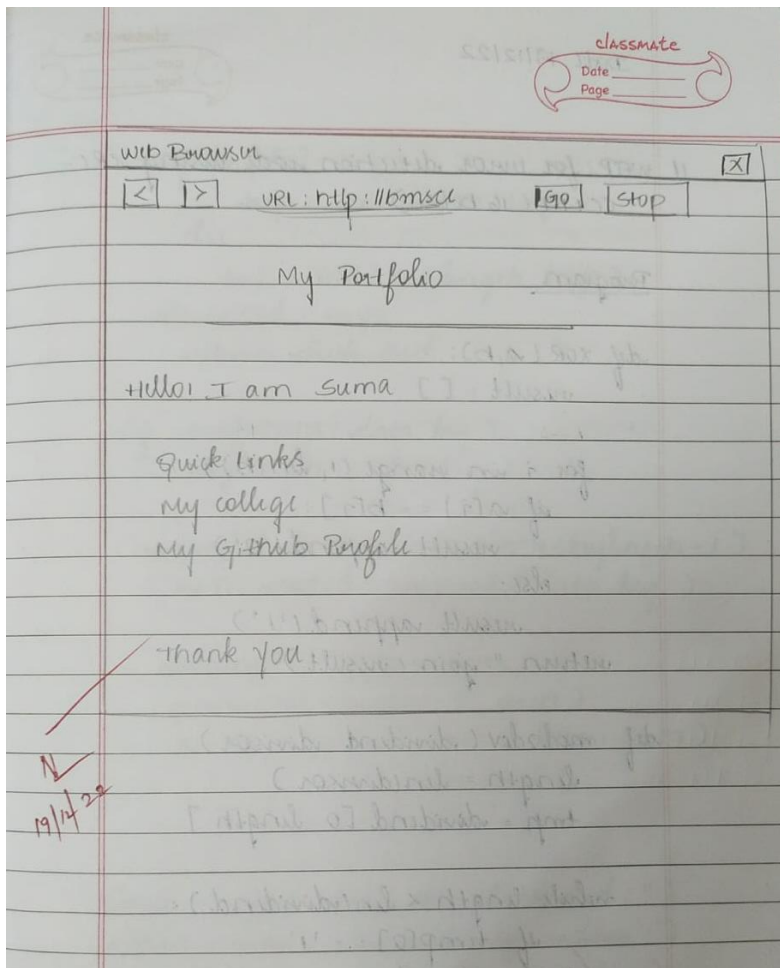 classmate
Date
Page
Web Browser
X
< > URL: http://bmsce Go Stop
My Portfolio
Hello! I am Suma
Quick Links
My college
My Github Profile
Thank you
N
19/12/22